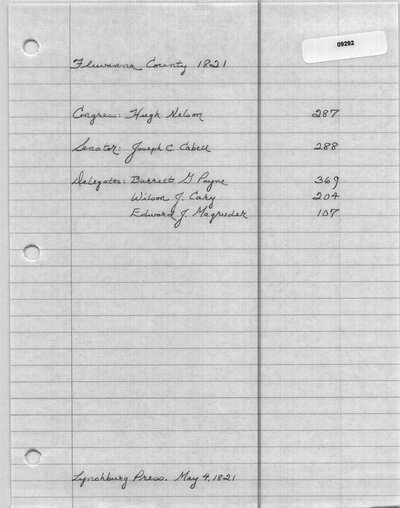 09292
Fluvanna County 1821
Congress: Hugh Nelson 287
Senator: Joseph C. Cabell 288
Delegates: Barrett G Payne 369
Wilson J. Cary 204
Edward J. Magruder 107
Lynchburg Press. May 4, 1821